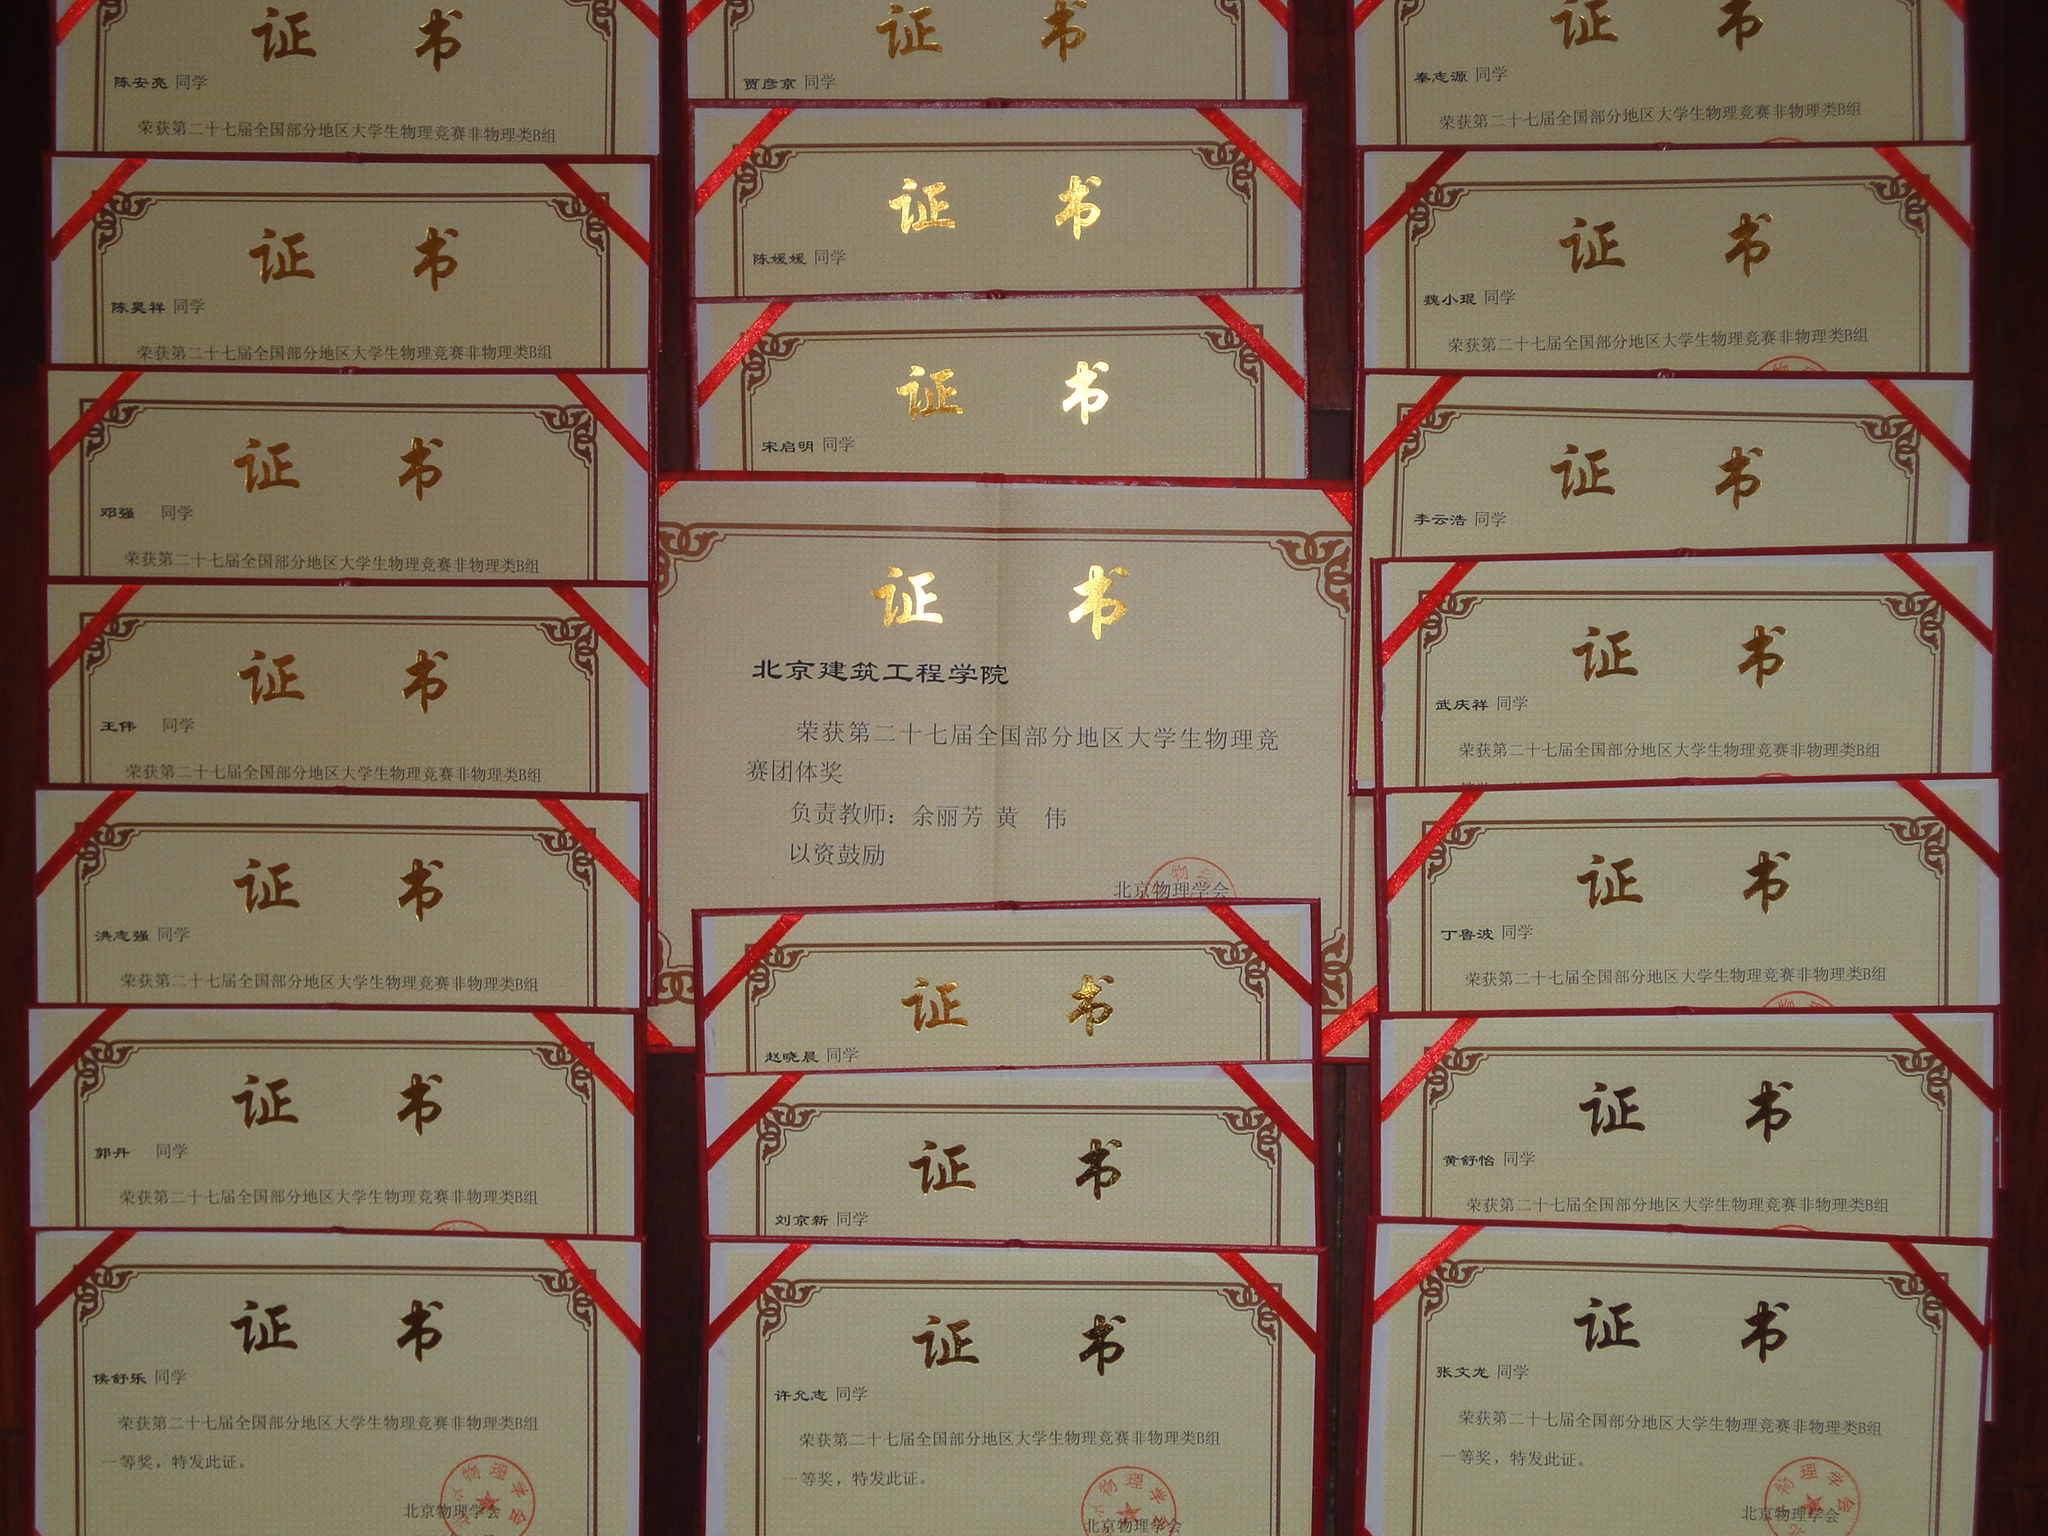 证 书
陈安亮 同学
荣获第二十七届全国部分地区大学生物理竞赛非物理类B组
证 书
陈昊祥 同学
荣获第二十七届全国部分地区大学生物理竞赛非物理类B组
证 书
邓强 同学
荣获第二十七届全国部分地区大学生物理竞赛非物理类B组
证 书
王伟 同学
荣获第二十七届全国部分地区大学生物理竞赛非物理类B组
证 书
洪志强 同学
荣获第二十七届全国部分地区大学生物理竞赛非物理类B组
证 书
郭丹 同学
荣获第二十七届全国部分地区大学生物理竞赛非物理类B组
证 书
侯舒乐 同学
荣获第二十七届全国部分地区大学生物理竞赛非物理类B组
一等奖，特发此证。
物理学会
北京物理学会
证 书
贾彦京 同学
证 书
陈媛媛 同学
证 书
宋启明 同学
证 书
北京建筑工程学院
荣获第二十七届全国部分地区大学生物理竞
赛团体奖
负责教师：余丽芳 黄 伟
以资鼓励
北京物理学会
证 书
赵晓晨 同学
证 书
刘京新 同学
证 书
许允志 同学
荣获第二十七届全国部分地区大学生物理竞赛非物理类B组
一等奖，特发此证。
物理学会
北京物理学会
证 书
秦志源 同学
荣获第二十七届全国部分地区大学生物理竞赛非物理类B组
证 书
魏小琨 同学
荣获第二十七届全国部分地区大学生物理竞赛非物理类B组
证 书
李云浩 同学
证 书
武庆祥 同学
荣获第二十七届全国部分地区大学生物理竞赛非物理类B组
证 书
丁鲁波 同学
荣获第二十七届全国部分地区大学生物理竞赛非物理类B组
证 书
黄舒怡 同学
荣获第二十七届全国部分地区大学生物理竞赛非物理类B组
证 书
张文龙 同学
荣获第二十七届全国部分地区大学生物理竞赛非物理类B组
一等奖，特发此证。
物理学会
北京物理学会